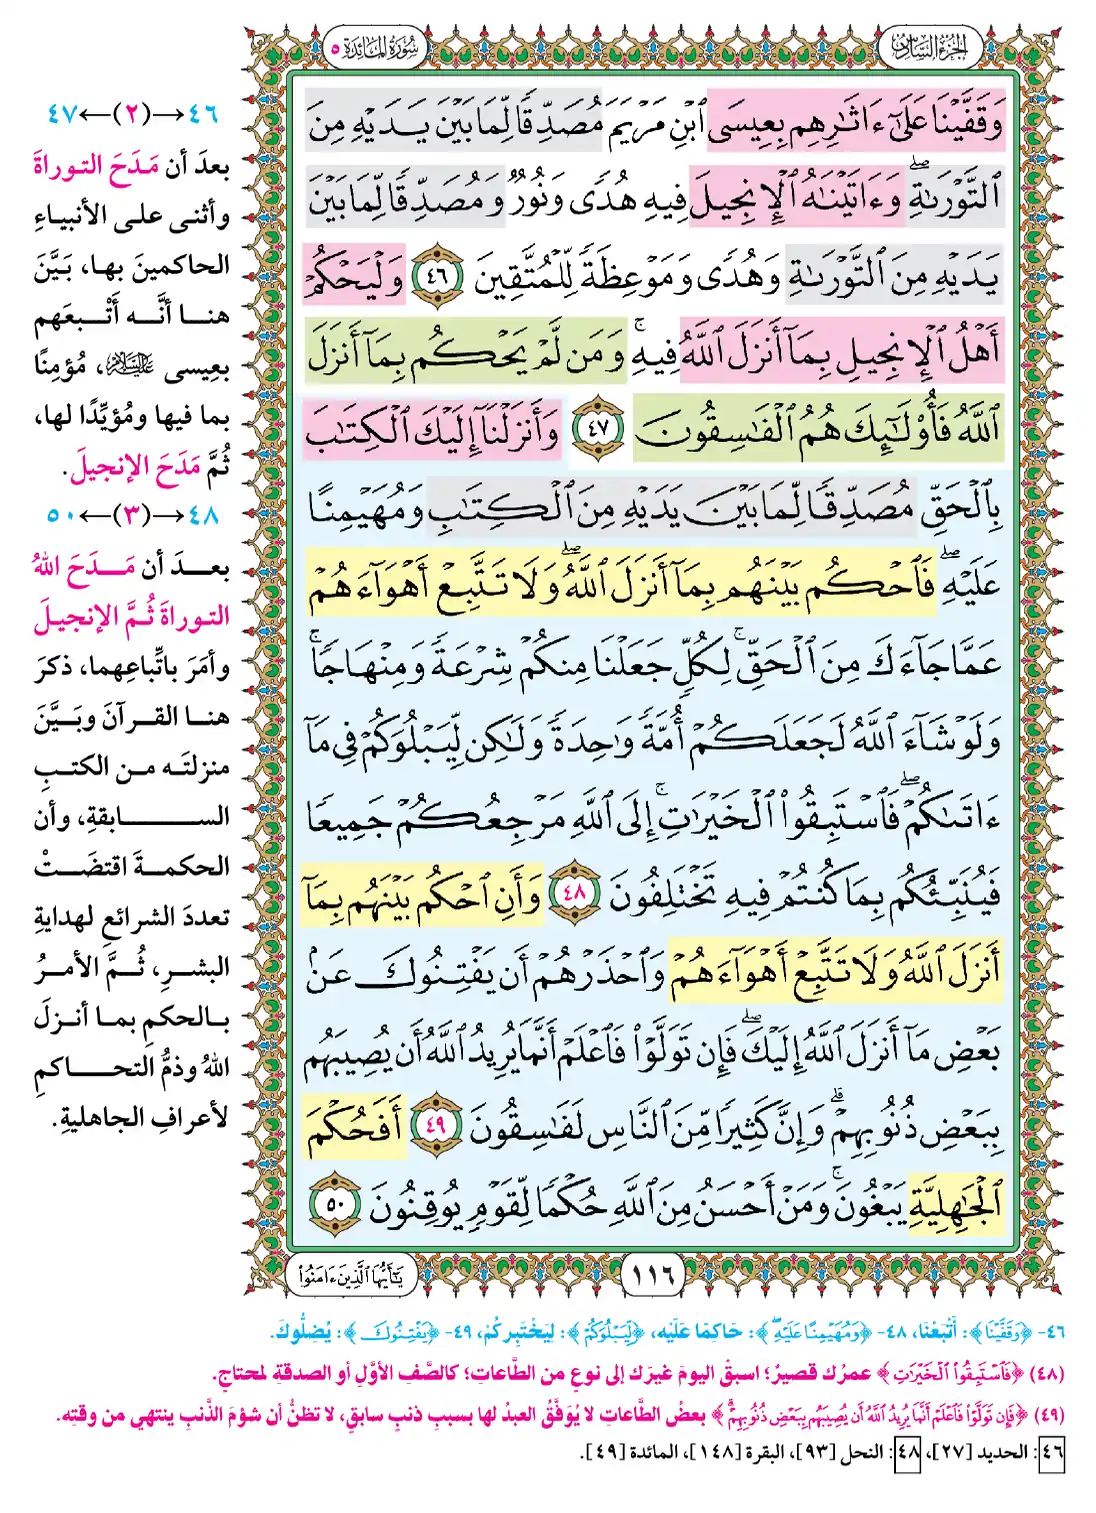 الجزء السادس
سورة المائدة ٥
وَقَفَّيْنَا عَلَىٰٓ ءَاثَٰرِهِم بِعِيسَى ٱبْنِ مَرْيَمَ مُصَدِّقًا لِّمَا بَيْنَ يَدَيْهِ مِنَ
ٱلتَّوْرَىٰةِۖ وَءَاتَيْنَٰهُ ٱلْإِنجِيلَ فِيهِ هُدًى وَنُورٌ وَمُصَدِّقًا لِّمَا بَيْنَ
يَدَيْهِ مِنَ ٱلتَّوْرَىٰةِ وَهُدًى وَمَوْعِظَةً لِّلْمُتَّقِينَ ٤٦ وَلْيَحْكُمْ
أَهْلُ ٱلْإِنجِيلِ بِمَآ أَنزَلَ ٱللَّهُ فِيهِۚ وَمَن لَّمْ يَحْكُم بِمَآ أَنزَلَ
ٱللَّهُ فَأُو۟لَٰٓئِكَ هُمُ ٱلْفَٰسِقُونَ ٤٧ وَأَنزَلْنَآ إِلَيْكَ ٱلْكِتَٰبَ
بِٱلْحَقِّ مُصَدِّقًا لِّمَا بَيْنَ يَدَيْهِ مِنَ ٱلْكِتَٰبِ وَمُهَيْمِنًا
عَلَيْهِۖ فَٱحْكُم بَيْنَهُم بِمَآ أَنزَلَ ٱللَّهُۖ وَلَا تَتَّبِعْ أَهْوَآءَهُمْ
عَمَّا جَآءَكَ مِنَ ٱلْحَقِّۚ لِكُلٍّ جَعَلْنَا مِنكُمْ شِرْعَةً وَمِنْهَاجًاۚ
وَلَوْ شَآءَ ٱللَّهُ لَجَعَلَكُمْ أُمَّةً وَٰحِدَةً وَلَٰكِن لِّيَبْلُوَكُمْ فِى مَآ
ءَاتَىٰكُمْۖ فَٱسْتَبِقُوا۟ ٱلْخَيْرَٰتِۚ إِلَى ٱللَّهِ مَرْجِعُكُمْ جَمِيعًا
فَيُنَبِّئُكُم بِمَا كُنتُمْ فِيهِ تَخْتَلِفُونَ ٤٨ وَأَنِ ٱحْكُم بَيْنَهُم بِمَآ
أَنزَلَ ٱللَّهُ وَلَا تَتَّبِعْ أَهْوَآءَهُمْ وَٱحْذَرْهُمْ أَن يَفْتِنُوكَ عَنۢ
بَعْضِ مَآ أَنزَلَ ٱللَّهُ إِلَيْكَۖ فَإِن تَوَلَّوْا۟ فَٱعْلَمْ أَنَّمَا يُرِيدُ ٱللَّهُ أَن يُصِيبَهُم
بِبَعْضِ ذُنُوبِهِمْۗ وَإِنَّ كَثِيرًا مِّنَ ٱلنَّاسِ لَفَٰسِقُونَ ٤٩ أَفَحُكْمَ
ٱلْجَٰهِلِيَّةِ يَبْغُونَۚ وَمَنْ أَحْسَنُ مِنَ ٱللَّهِ حُكْمًا لِّقَوْمٍ يُوقِنُونَ ٥٠
١١٦
يَٰٓأَيُّهَا ٱلَّذِينَ ءَامَنُوا۟
٤٦→(٢)←٤٧
بعدَ أن مَدَحَ التوراةَ
وأثنى على الأنبياءِ
الحاكمينَ بها، بَيَّنَ
هنا أنَّه أَتْبَعَهم
بعِيسى عَلَيْهِ السَّلَامُ، مُؤمِنًا
بما فيها ومُؤيِّدًا لها،
ثُمَّ مَدَحَ الإنجيلَ.
٤٨→(٣)←٥٠
بعدَ أن مَدَحَ اللهُ
التوراةَ ثُمَّ الإنجيلَ
وأمَرَ باتِّباعِهما، ذكرَ
هنا القرآنَ وبَيَّنَ
منزلتَه من الكتبِ
السابقةِ، وأن
الحكمةَ اقتضَتْ
تعددَ الشرائعِ لهدايةِ
البشرِ، ثُمَّ الأمرُ
بالحكمِ بما أنزلَ
اللهُ وذمُّ التحاكمِ
لأعرافِ الجاهليةِ.
٤٦- ﴿وَقَفَّيْنَا﴾: أَتْبَعْنَا، ٤٨- ﴿وَمُهَيْمِنًا عَلَيْهِۖ﴾: حَاكِمًا عَلَيْهِ، ﴿لِّيَبْلُوَكُمْ﴾: لِيَخْتَبِرَكُمْ، ٤٩- ﴿يَفْتِنُوكَ﴾: يُضِلُّوكَ.
(٤٨) ﴿فَٱسْتَبِقُوا۟ ٱلْخَيْرَٰتِ﴾ عمرُك قصيرٌ؛ اسبقْ اليومَ غيرَك إلى نوعٍ من الطَّاعاتِ؛ كالصَّف الأوَّلِ أو الصدقةِ لمحتاجٍ.
(٤٩) ﴿فَإِن تَوَلَّوْا۟ فَٱعْلَمْ أَنَّمَا يُرِيدُ ٱللَّهُ أَن يُصِيبَهُم بِبَعْضِ ذُنُوبِهِمْۗ﴾ بعضُ الطَّاعاتِ لا يُوَفَّقُ العبدُ لها بسببِ ذنبٍ سابقٍ، لا تظنُّ أن شؤمَ الذَّنبِ ينتهي من وقتِه.
٤٦: الحديد [٢٧]، ٤٨: النحل [٩٣]، البقرة [١٤٨]، المائدة [٤٩].